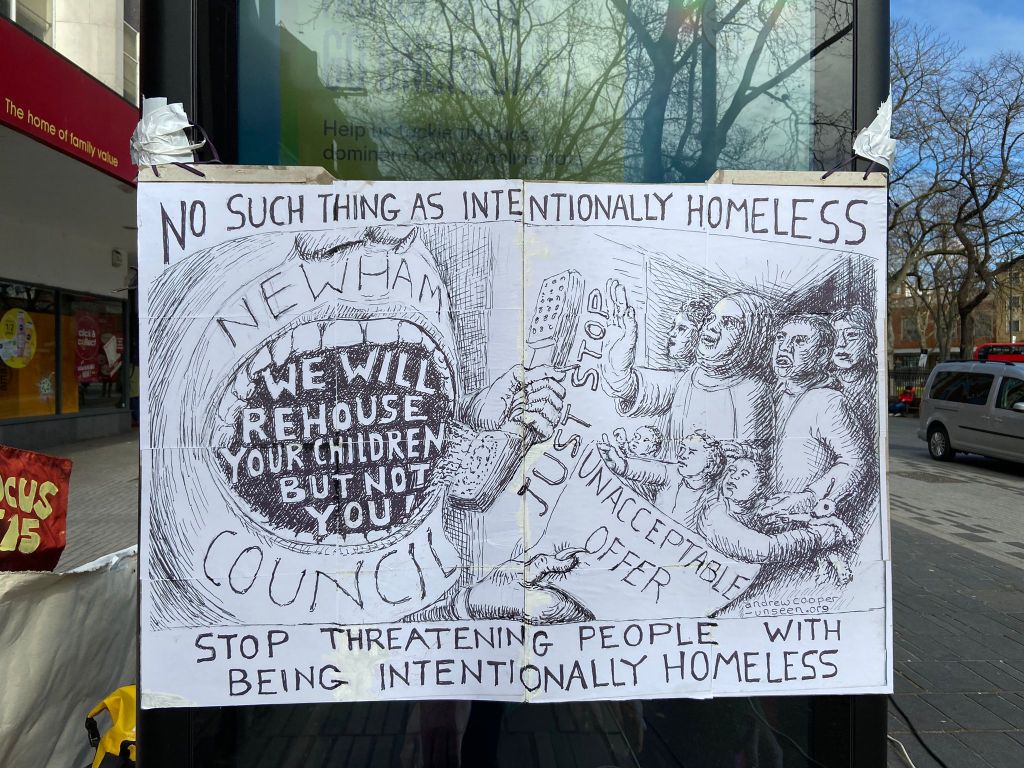 The home of family value
Help us tackle the most
NO SUCH THING AS INTENTIONALLY HOMELESS
NEWHAM
WE WILL
REHOUSE
YOUR CHILDREN
BUT NOT
YOU!
COUNCIL
JUST STOP
UNACCEPTABLE
OFFER
andrewcooper
-unseen.org
STOP THREATENING PEOPLE WITH
BEING INTENTIONALLY HOMELESS
click &
collect
OCUS
15